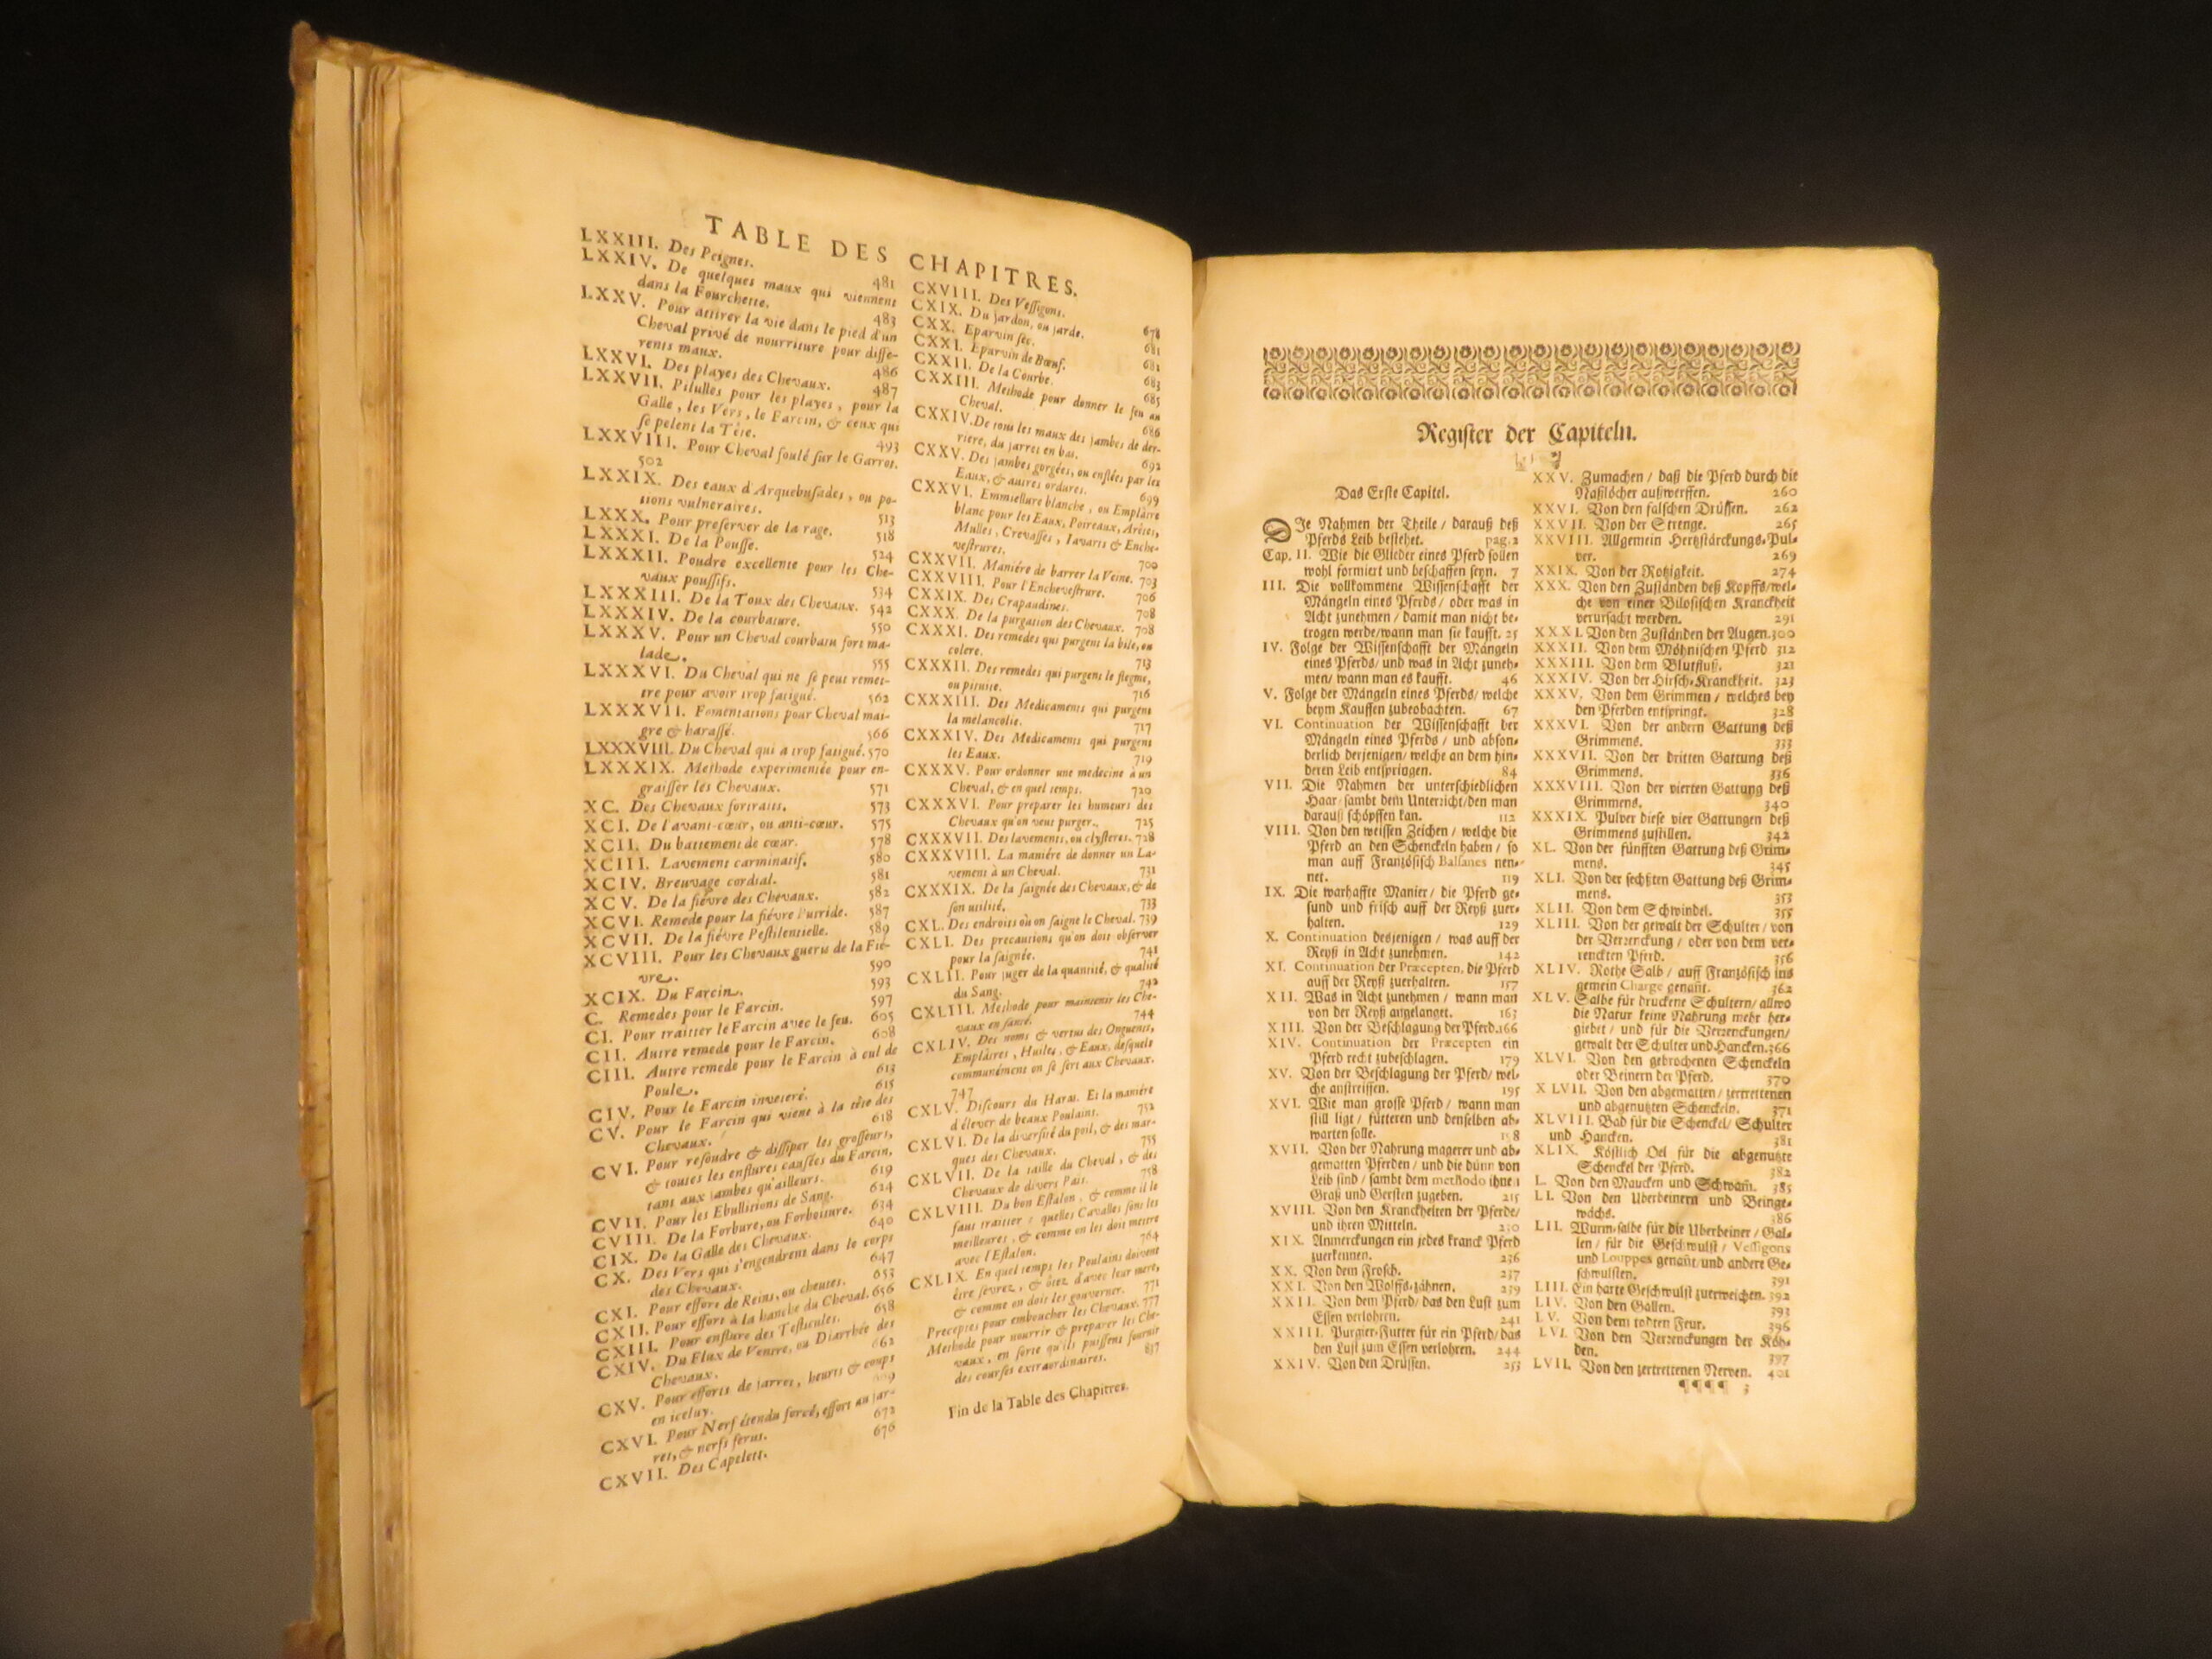 TABLE DES CHAPITRES.
LXXIII. Des Peignes. 481
LXXIV. De quelques maux qui viennent
dans la Fourchette. 483
LXXV. Pour attirer la vie dans le pied d'un
Cheval privé de nourriture pour diffe-
rents maux. 486
LXXVI. Des playes des Chevaux. 487
LXXVII. Pilulles pour les playes, pour la
Galle, les Vers, le Farcin, & ceux qui
se pelent la Tête. 493
LXXVIII. Pour Cheval foulé sur le Garrot.
502
LXXIX. Des eaux d'Arquebusades, ou po-
tions vulneraires. 513
LXXX. Pour preserver de la rage. 518
LXXXI. De la Pousse. 524
LXXXII. Poudre excellente pour les Che-
vaux poussifs. 534
LXXXIII. De la Toux des Chevaux. 542
LXXXIV. De la courbature. 550
LXXXV. Pour un Cheval courbatu fort ma-
lade. 555
LXXXVI. Du Cheval qui ne se peut remet-
tre pour avoir trop fatigué. 562
LXXXVII. Fomentations pour Cheval mai-
gre & harassé. 566
LXXXVIII. Du Cheval qui a trop fatigué. 570
LXXXIX. Methode experimentée pour en-
graisser les Chevaux. 571
XC. Des Chevaux fortraits. 573
XCI. De l'avant-cœur, ou anti-cœur. 575
XCII. Du battement de cœur. 578
XCIII. Lavement carminatif. 580
XCIV. Breuvage cordial. 581
XCV. De la fiévre des Chevaux. 582
XCVI. Remede pour la fiévre putride. 587
XCVII. De la fiévre Pestilentielle. 589
XCVIII. Pour les Chevaux gueris de la Fié-
vre. 590
XCIX. Du Farcin. 593
C. Remedes pour le Farcin. 597
CI. Pour traitter le Farcin avec le feu. 605
CII. Autre remede pour le Farcin. 608
CIII. Autre remede pour le Farcin à cul de
Poule. 613
CIV. Pour le Farcin inveteré. 615
CV. Pour le Farcin qui vient à la tête des
Chevaux. 618
CVI. Pour resoudre & dissiper les grosseurs,
& toutes les enflures causées du Farcin,
tant aux jambes qu'ailleurs. 619
CVII. Pour les Ebullitions de Sang. 624
CVIII. De la Forbure, ou Forboiture. 634
CIX. De la Galle des Chevaux. 640
CX. Des Vers qui s'engendrent dans le corps
des Chevaux. 647
CXI. Pour effort de Reins, ou cheutes. 653
CXII. Pour effort à la hanche du Cheval. 656
CXIII. Pour enflure des Testicules. 658
CXIV. Du Flux de Ventre, ou Diarrhée des
Chevaux. 662
CXV. Pour efforts de jarret, heurts & coups
en iceluy.
CXVI. Pour Nerf étendu forcé, effort au jar-
ret, & nerfs ferus. 672
CXVII. Des Capelets. 676
CXVIII. Des Vessigons. 678
CXIX. Du jardon, ou jarde. 681
CXX. Eparvin sec. 681
CXXI. Eparvin de Bœuf. 683
CXXII. De la Courbe. 685
CXXIII. Methode pour donner le feu au
Cheval. 686
CXXIV. De tous les maux des jambes de der-
riere, du jarret en bas. 692
CXXV. Des jambes gorgées, ou enflées par les
Eaux, & autres ordures. 699
CXXVI. Emmiellure blanche, ou Emplâtre
blanc pour les Eaux, Poireaux, Arêtes,
Mulles, Crevasses, Iavarts & Enche-
vestrures. 700
CXXVII. Maniére de barrer la Veine. 703
CXXVIII. Pour l'Enchevestrure. 706
CXXIX. Des Crapaudines. 708
CXXX. De la purgation des Chevaux. 708
CXXXI. Des remedes qui purgent la bile, ou
colere. 713
CXXXII. Des remedes qui purgent le flegme,
ou pituite. 716
CXXXIII. Des Medicaments qui purgent
la melancolie. 717
CXXXIV. Des Medicaments qui purgent
les Eaux. 719
CXXXV. Pour ordonner une medecine à un
Cheval, & en quel temps. 720
CXXXVI. Pour preparer les humeurs des
Chevaux qu'on veut purger. 725
CXXXVII. Des lavements, ou clysteres. 728
CXXXVIII. La maniére de donner un La-
vement à un Cheval. 731
CXXXIX. De la saignée des Chevaux, & de
son utilité. 733
CXL. Des endroits où on saigne le Cheval. 739
CXLI. Des precautions qu'on doit observer
pour la saignée. 741
CXLII. Pour juger de la quantité, & qualité
du Sang. 742
CXLIII. Methode pour maintenir les Che-
vaux en santé. 744
CXLIV. Des noms & vertus des Onguents,
Emplâtres, Huiles, & Eaux, desquels
communément on se sert aux Chevaux.
747
CXLV. Discours du Haras. Et la maniére
d'élever de beaux Poulains. 752
CXLVI. De la diversité du poil, & des mar-
ques des Chevaux. 755
CXLVII. De la taille du Cheval, & des
Chevaux de divers Païs. 758
CXLVIII. Du bon Estalon, & comme il le
faut traitter; quelles Cavalles sont les
meilleures, & comme on les doit mettre
avec l'Estalon. 764
CXLIX. En quel temps les Poulains doivent
être sevrez, & ôtez d'avec leur mere,
& comme on doit les gouverner. 771
Preceptes pour emboucher les Chevaux. 777
Methode pour nourrir & preparer les Che-
vaux, en sorte qu'ils puissent fournir
des courses extraordinaires. 837
Fin de la Table des Chapitres.
Register der Capiteln.
Das Erste Capitel.
DIe Nahmen der Theile / darauß deß
Pferds Leib bestehet. pag. 2
Cap. II. Wie die Glieder eines Pferd sollen
wohl formiert und beschaffen seyn. 7
III. Die vollkommene Wissenschafft der
Mängeln eines Pferds / oder was in
Acht zunehmen / damit man nicht be-
trogen werde / wann man sie kaufft. 25
IV. Folge der Wissenschafft der Mängeln
eines Pferds / und was in Acht zuneh-
men / wann man es kaufft. 46
V. Folge der Mängeln eines Pferds / welche
beym Kauffen zubeobachten. 67
VI. Continuation der Wissenschafft der
Mängeln eines Pferds / und abson-
derlich derjenigen / welche an dem hin-
deren Leib entspringen. 84
VII. Die Nahmen der unterschiedlichen
Haar / sambt dem Unterricht / den man
darauß schöpffen kan. 112
VIII. Von den weissen Zeichen / welche die
Pferd an den Schenckeln haben / so
man auff Französisch Balsanes nen-
net. 119
IX. Die warhaffte Manier / die Pferd ge-
sund und frisch auff der Reyß zuer-
halten. 129
X. Continuation desjenigen / was auff der
Reyß in Acht zunehmen. 142
XI. Continuation der Præcepten, die Pferd
auff der Reyß zuerhalten. 157
XII. Was in Acht zunehmen / wann man
von der Reyß angelanget. 163
XIII. Von der Beschlagung der Pferd. 166
XIV. Continuation der Præcepten ein
Pferd recht zubeschlagen. 179
XV. Von der Beschlagung der Pferd / wel-
che anstreiffen. 195
XVI. Wie man grosse Pferd / wann man
still ligt / fütteren und denselben ab-
warten solle.
XVII. Von der Nahrung magerer und ab-
gematten Pferden / und die dünn von
Leib sind / sambt dem methodo ihnen
Graß und Gersten zugeben. 215
XVIII. Von den Kranckheiten der Pferde /
und ihren Mitteln. 230
XIX. Anmerckungen ein jedes kranck Pferd
zuerkennen. 236
XX. Von dem Frosch. 237
XXI. Von den Wolffs-zähnen. 239
XXII. Von dem Pferd / das den Lust zum
Essen verlohren. 241
XXIII. Purgier-Futter für ein Pferd / das
den Lust zum Essen verlohren. 244
XXIV. Von den Drüssen. 253
XXV. Zumachen / daß die Pferd durch die
Naßlöcher außwerffen. 260
XXVI. Von den falschen Drüssen. 262
XXVII. Von der Strenge. 265
XXVIII. Allgemein Hertzstärckungs-Pul-
ver. 269
XXIX. Von der Rotzigkeit. 274
XXX. Von den Zuständen deß Kopffs / wel-
che von einer Bilosischen Kranckheit
verursacht werden. 291
XXXI. Von den Zuständen der Augen. 300
XXXII. Von dem Möhnischen Pferd 312
XXXIII. Von dem Blutfluß. 321
XXXIV. Von der Hirsch-Kranckheit. 323
XXXV. Von dem Grimmen / welches bey
den Pferden entspringt. 328
XXXVI. Von der andern Gattung deß
Grimmens. 333
XXXVII. Von der dritten Gattung deß
Grimmens. 336
XXXVIII. Von der vierten Gattung deß
Grimmens. 340
XXXIX. Pulver diese vier Gattungen deß
Grimmens zustillen. 342
XL. Von der fünfften Gattung deß Grim-
mens. 345
XLI. Von der sechßten Gattung deß Grim-
mens. 353
XLII. Von dem Schwindel. 355
XLIII. Von der gewalt der Schulter / von
der Verrenckung / oder von dem ver-
renckten Pferd. 356
XLIV. Rothe Salb / auff Französisch ins
gemein Charge genañt. 362
XLV. Salbe für druckene Schultern / allwo
die Natur keine Nahrung mehr her-
giebet / und für die Verrenckungen /
gewalt der Schulter und Hancken. 366
XLVI. Von den gebrochenen Schenckeln
oder Beinern der Pferd. 370
XLVII. Von den abgematten / zertrettenen
und abgenutzten Schenckeln. 371
XLVIII. Bad für die Schenckel / Schulter
und Hancken. 381
XLIX. Köstlich Oel für die abgenutzte
Schenckel der Pferd. 382
L. Von den Maucken und Schwam̃. 385
LI. Von den Uberbeinern und Beinge-
wächs. 386
LII. Wurm-salbe für die Uberbeiner / Gal-
len / für die Geschwulst / Vessigons
und Louppes genañt / und andere Ge-
schwulsten. 391
LIII. Ein harte Geschwulst zuerweichen. 392
LIV. Von den Gallen. 393
LV. Von dem todten Feur. 396
LVI. Von den Verrenckungen der Köh-
den. 397
LVII. Von den zertrettenen Nerven. 401
¶¶¶¶ 3